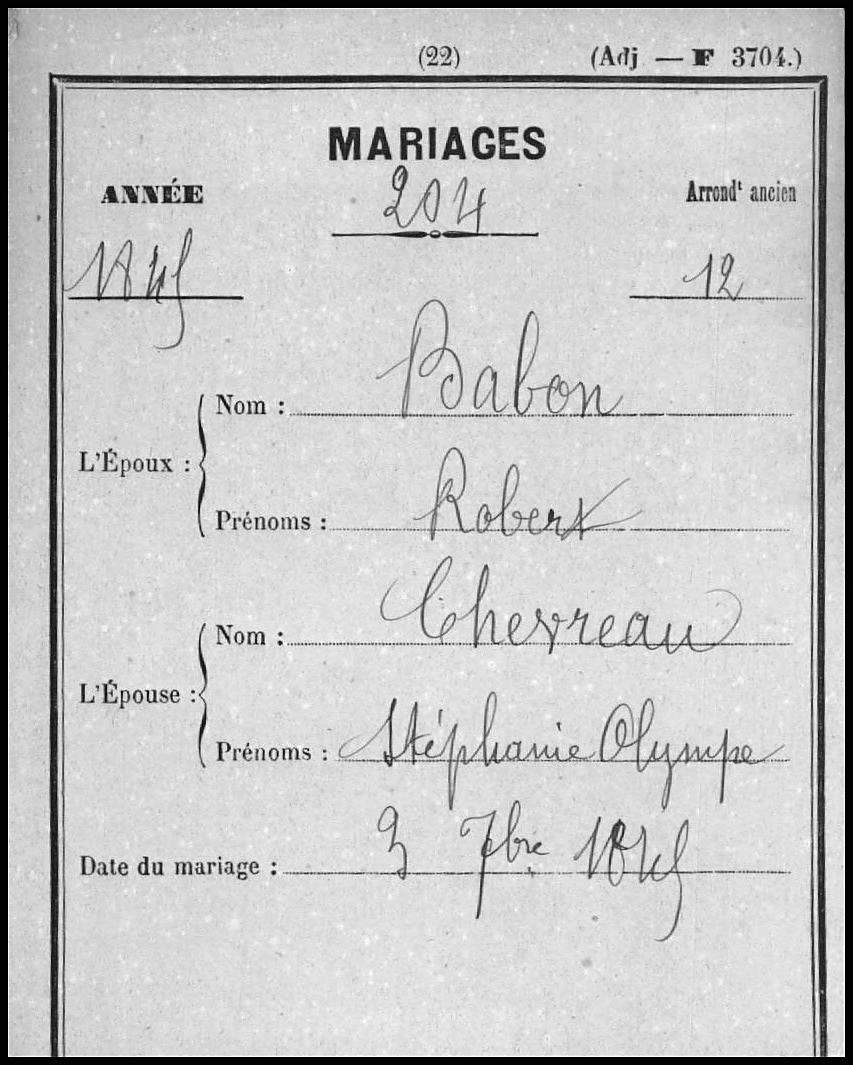 (22) (Adj — F 3704.)
MARIAGES
ANNÉE 204 Arrondt ancien
1845 12
Nom : Babon
L'Époux :
Prénoms : Robert
Nom : Chevreau
L'Épouse :
Prénoms : Stéphanie Olympe
Date du mariage : 3 7bre 1845